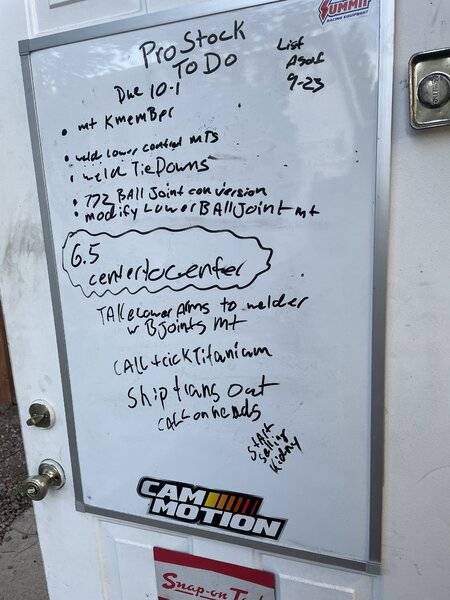 SUMMIT
RACING EQUIPMENT
Pro Stock
To Do
List
As of
9-23
Due 10-1
• mt KmemBer
• weld Lower control mTs
• weld Tie Downs
• 772 BAll Joint conversion
• modify Lower BAll Joint mt
6.5
center to center
TAKe Lower Arms to welder
w BJoints mt
CAll Titanium
Ship trans out
CALL on heads
StArt
Selling
Kidny
CAM
MOTION
Snap-on